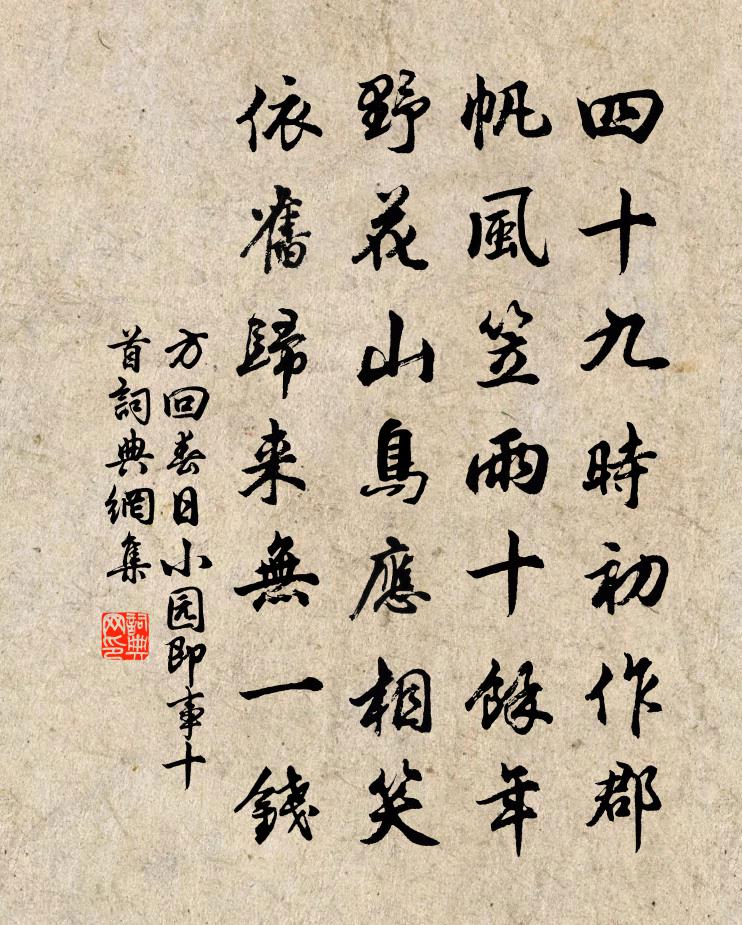 四十九時初作郡
帆風笠雨十餘年
野花山鳥應相笑
依舊歸来無一錢
方回春日小园即事十
首詞典網集
詞典
网印